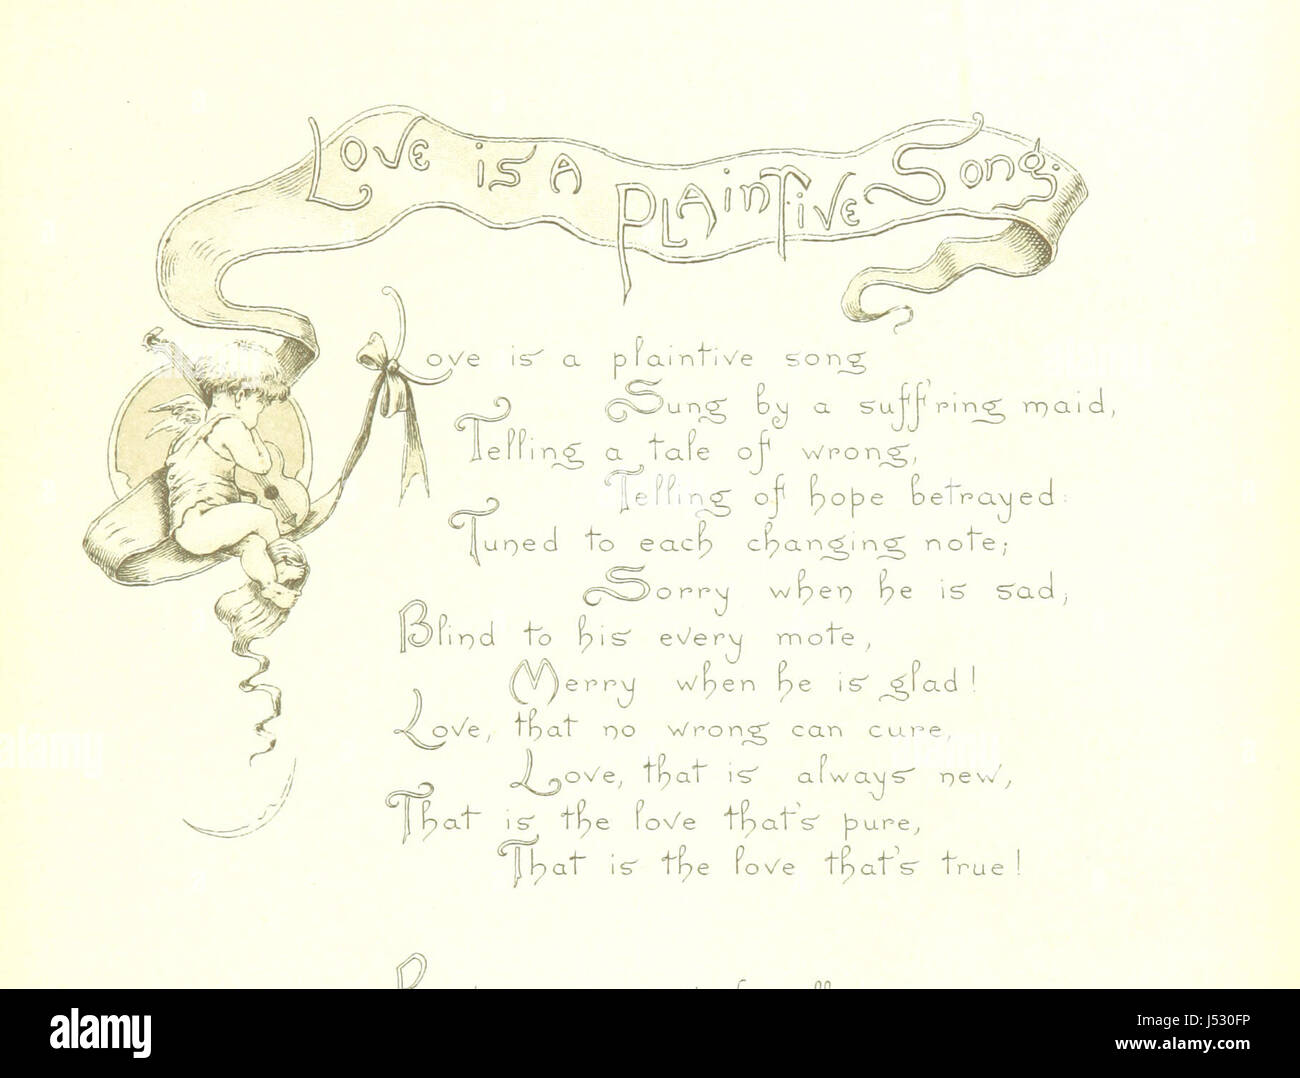 Love is a Plaintive Song.
Love is a plaintive song
Sung by a suff'ring maid,
Telling a tale of wrong,
Telling of hope betrayed:
Tuned to each changing note;
Sorry when he is sad;
Blind to his every mote,
Merry when he is glad!
Love, that no wrong can cure,
Love, that is always new,
That is the love that's pure,
That is the love that's true!
alamy
Image ID: J530FP
www.alamy.com